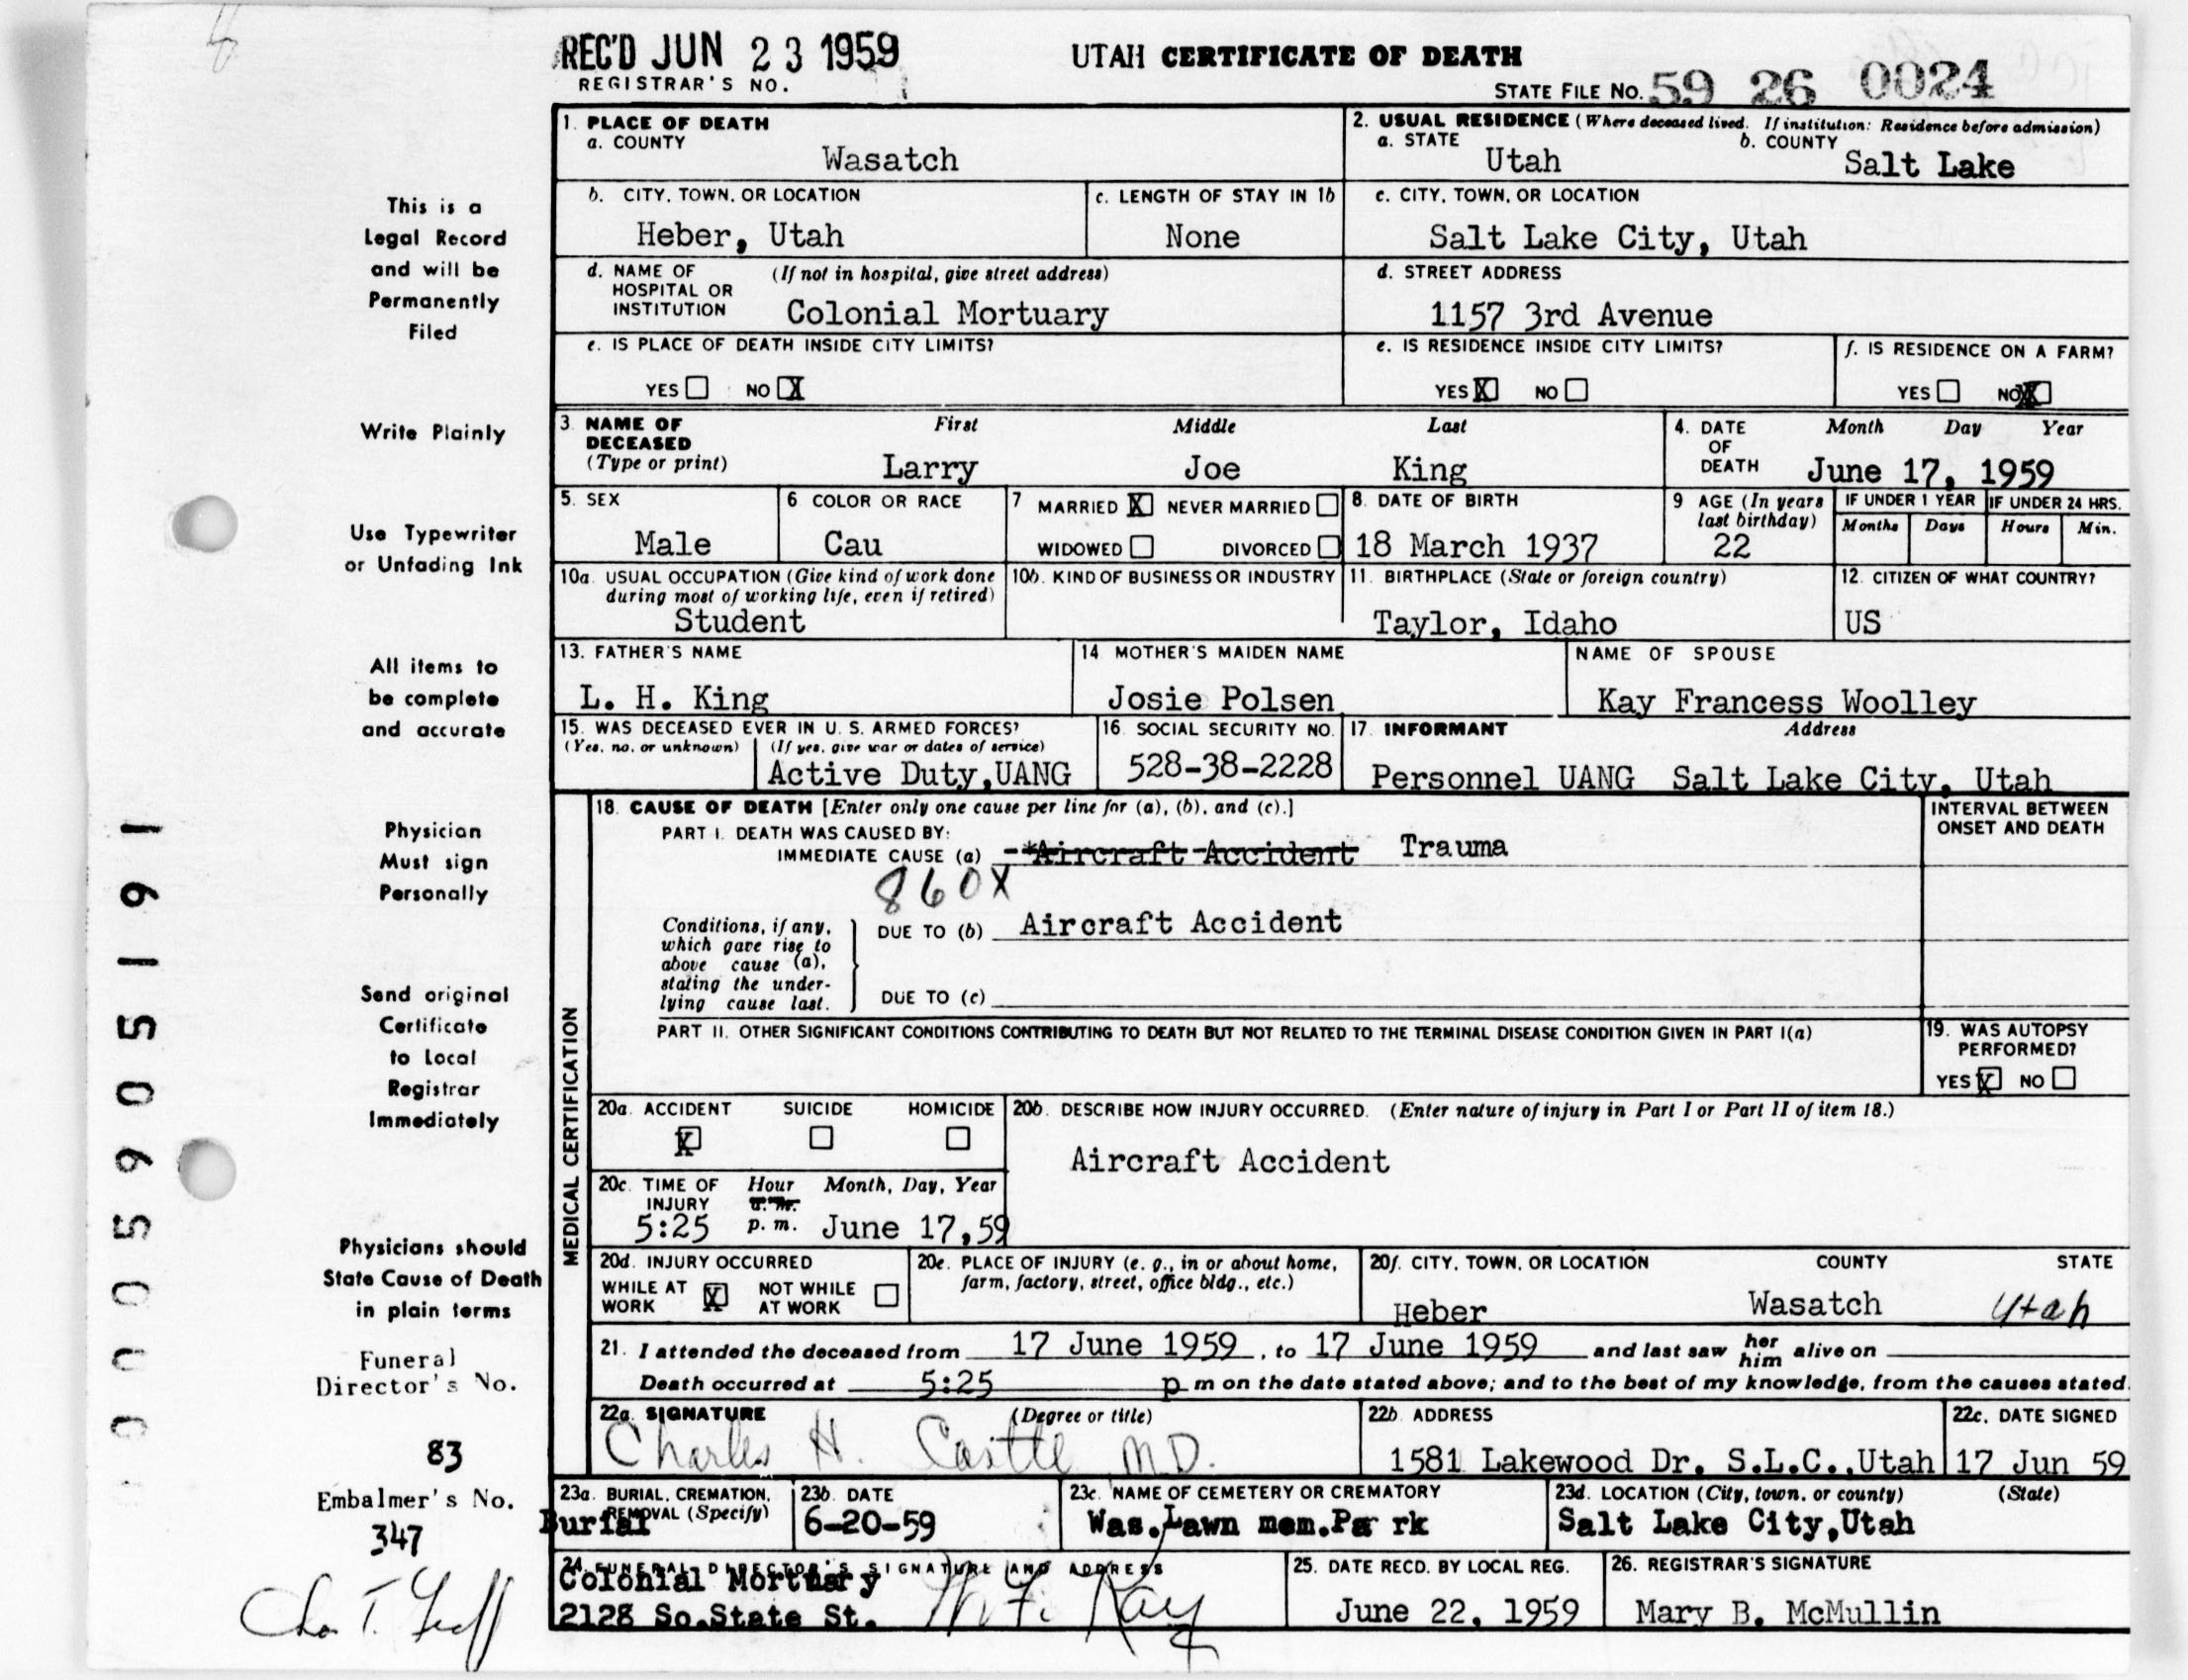 REC'D JUN 23 1959
REGISTRAR'S NO.
UTAH CERTIFICATE OF DEATH
STATE FILE NO. 59 26 0024
This is a
Legal Record
and will be
Permanently
Filed
Write Plainly
Use Typewriter
or Unfading Ink
All items to
be complete
and accurate
Physician
Must sign
Personally
Send original
Certificate
to Local
Registrar
Immediately
Physicians should
State Cause of Death
in plain terms
Funeral
Director's No.
83
Embalmer's No.
347
1. PLACE OF DEATH
a. COUNTY
Wasatch
2. USUAL RESIDENCE (Where deceased lived. If institution: Residence before admission)
a. STATE Utah b. COUNTY Salt Lake
b. CITY, TOWN, OR LOCATION
Heber, Utah
c. LENGTH OF STAY IN 1b
None
c. CITY, TOWN, OR LOCATION
Salt Lake City, Utah
d. NAME OF HOSPITAL OR INSTITUTION (If not in hospital, give street address)
Colonial Mortuary
d. STREET ADDRESS
1157 3rd Avenue
e. IS PLACE OF DEATH INSIDE CITY LIMITS?
YES NO X
e. IS RESIDENCE INSIDE CITY LIMITS?
YES X NO
f. IS RESIDENCE ON A FARM?
YES NO X
3 NAME OF DECEASED (Type or print)
First Middle Last
Larry Joe King
4. DATE OF DEATH Month Day Year
June 17, 1959
5. SEX
Male
6 COLOR OR RACE
Cau
7 MARRIED X NEVER MARRIED
WIDOWED DIVORCED
8. DATE OF BIRTH
18 March 1937
9 AGE (In years last birthday)
22
IF UNDER 1 YEAR
Months Days
IF UNDER 24 HRS.
Hours Min.
10a. USUAL OCCUPATION (Give kind of work done during most of working life, even if retired)
Student
10b. KIND OF BUSINESS OR INDUSTRY
11. BIRTHPLACE (State or foreign country)
Taylor, Idaho
12. CITIZEN OF WHAT COUNTRY?
US
13. FATHER'S NAME
L. H. King
14 MOTHER'S MAIDEN NAME
Josie Polsen
NAME OF SPOUSE
Kay Francess Woolley
15. WAS DECEASED EVER IN U. S. ARMED FORCES?
(Yes, no, or unknown) (If yes, give war or dates of service)
Active Duty,UANG
16. SOCIAL SECURITY NO.
528-38-2228
17. INFORMANT Address
Personnel UANG Salt Lake City, Utah
MEDICAL CERTIFICATION
18. CAUSE OF DEATH [Enter only one cause per line for (a), (b), and (c).]
INTERVAL BETWEEN ONSET AND DEATH
PART I. DEATH WAS CAUSED BY:
IMMEDIATE CAUSE (a) *Aircraft Accident Trauma
860X
Conditions, if any, which gave rise to above cause (a), stating the underlying cause last.
DUE TO (b) Aircraft Accident
DUE TO (c)
PART II. OTHER SIGNIFICANT CONDITIONS CONTRIBUTING TO DEATH BUT NOT RELATED TO THE TERMINAL DISEASE CONDITION GIVEN IN PART I(a)
19. WAS AUTOPSY PERFORMED?
YES X NO
20a. ACCIDENT SUICIDE HOMICIDE
X
20b. DESCRIBE HOW INJURY OCCURRED. (Enter nature of injury in Part I or Part II of item 18.)
Aircraft Accident
20c. TIME OF INJURY Hour a.m. p. m. Month, Day, Year
5:25 June 17,59
20d. INJURY OCCURRED
WHILE AT WORK X NOT WHILE AT WORK
20e. PLACE OF INJURY (e. g., in or about home, farm, factory, street, office bldg., etc.)
20f. CITY, TOWN, OR LOCATION COUNTY STATE
Heber Wasatch Utah
21. I attended the deceased from 17 June 1959, to 17 June 1959 and last saw her him alive on
Death occurred at 5:25 p m on the date stated above; and to the best of my knowledge, from the causes stated.
22a. SIGNATURE (Degree or title)
Charles H. Castle M D.
22b. ADDRESS
1581 Lakewood Dr. S.L.C.,Utah
22c. DATE SIGNED
17 Jun 59
23a. BURIAL, CREMATION, REMOVAL (Specify)
Burial
23b. DATE
6-20-59
23c. NAME OF CEMETERY OR CREMATORY
Was.Lawn mem.Pa rk
23d. LOCATION (City, town, or county) (State)
Salt Lake City,Utah
24. FUNERAL DIRECTOR'S SIGNATURE AND ADDRESS
Colonial Mortuary
2128 So.State St.
25. DATE RECD. BY LOCAL REG.
June 22, 1959
26. REGISTRAR'S SIGNATURE
Mary B. McMullin